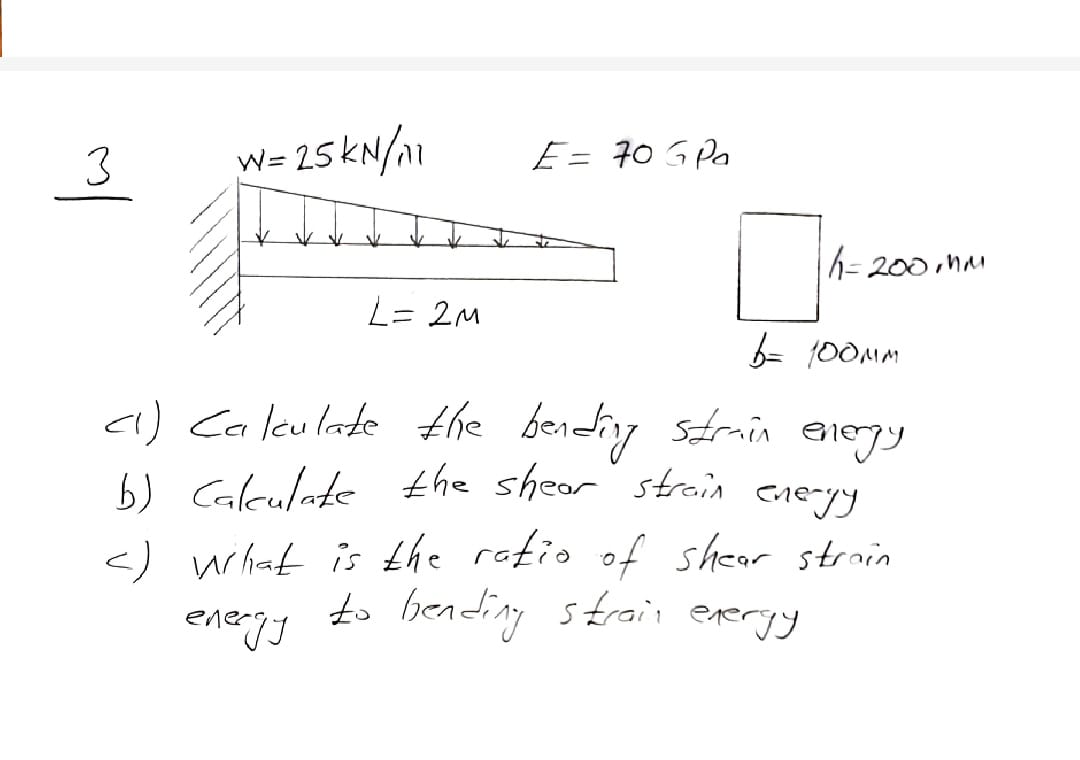 3
W= 25 kN/m
E= 70 GPa
h= 200 mm
L= 2M
b= 100mm
a) Calculate the bending strain energy
b) Calculate the shear strain energy
c) What is the ratio of shear strain
energy to bending strain energy